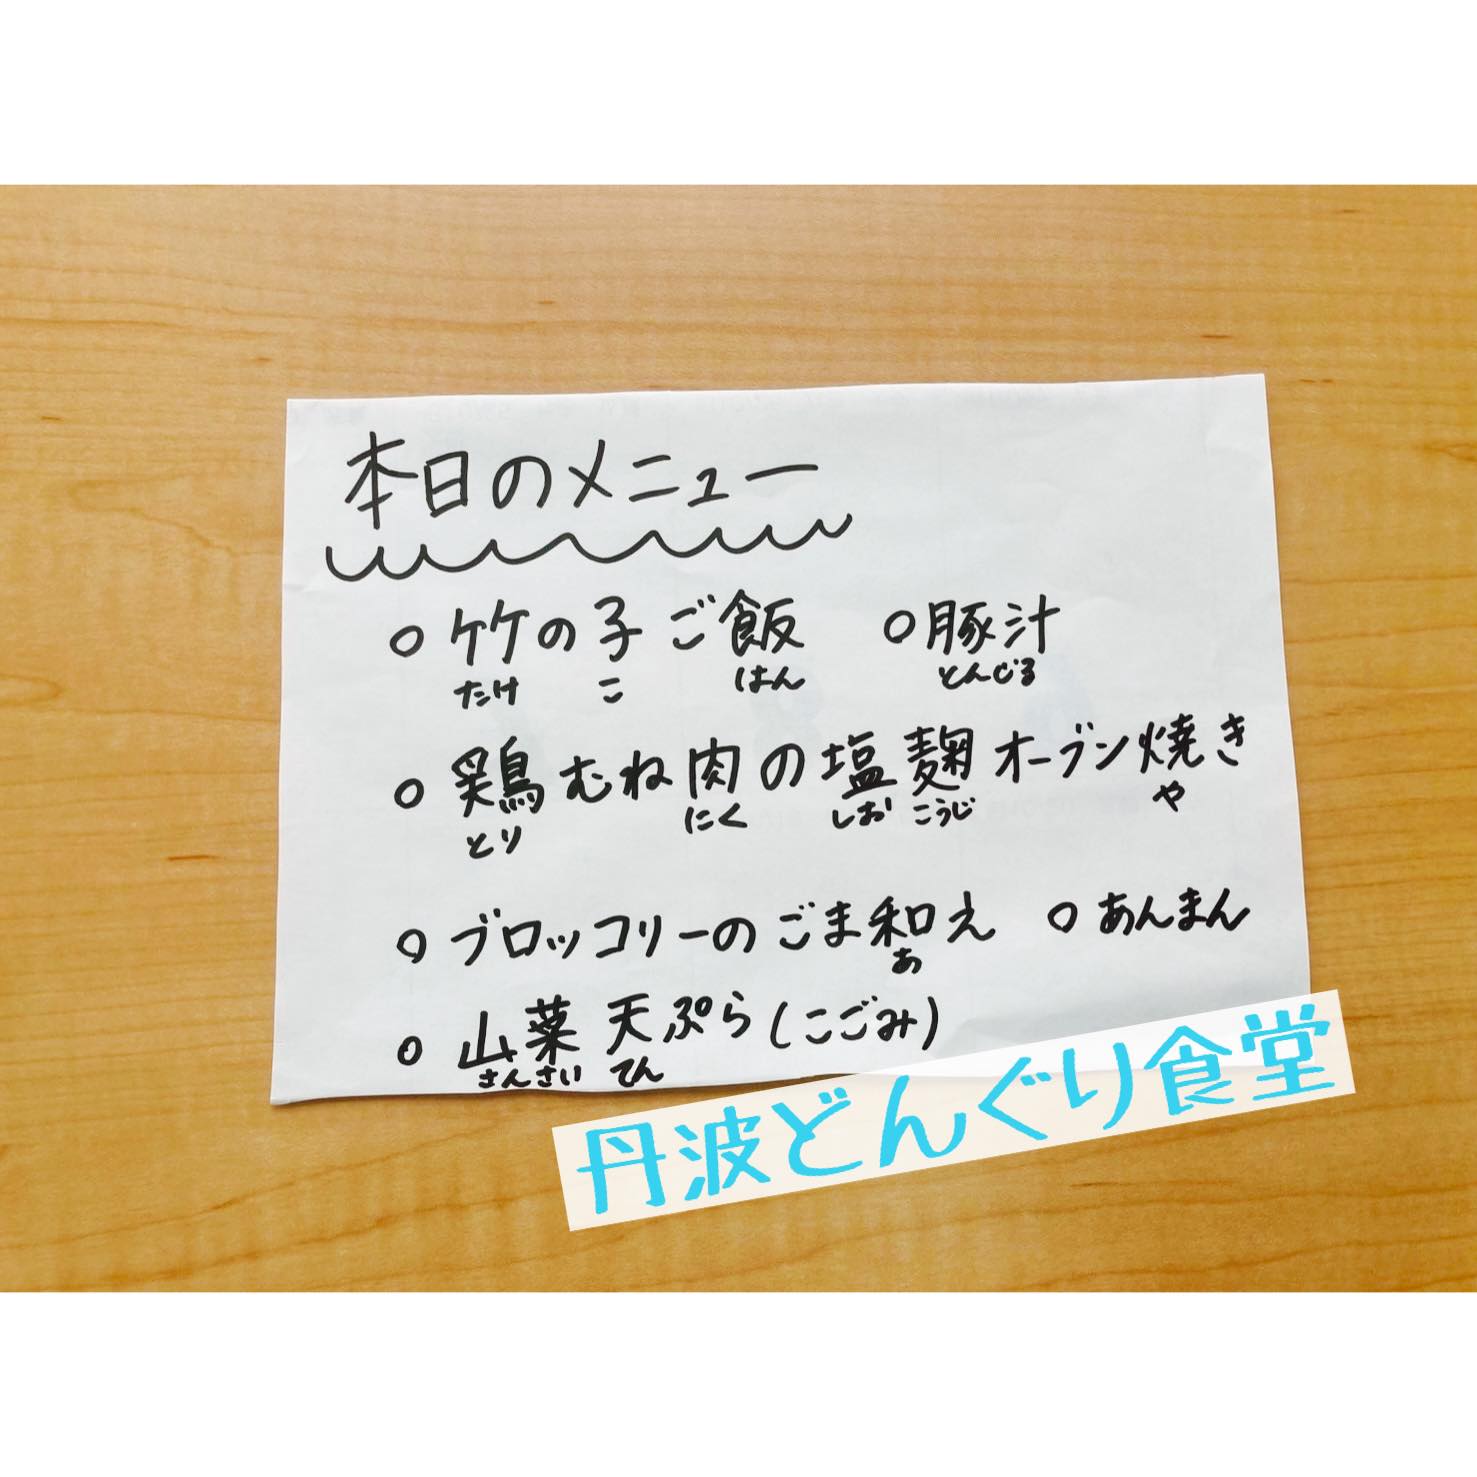 本日のメニュー
○ 竹の子ご飯 ○豚汁
たけ こ はん とんじる
○ 鶏むね肉の塩麹オーブン焼き
とり にく しお こうじ や
○ ブロッコリーのごま和え ○ あんまん
あ
○ 山菜天ぷら(こごみ)
さんさい てん
丹波どんぐり食堂